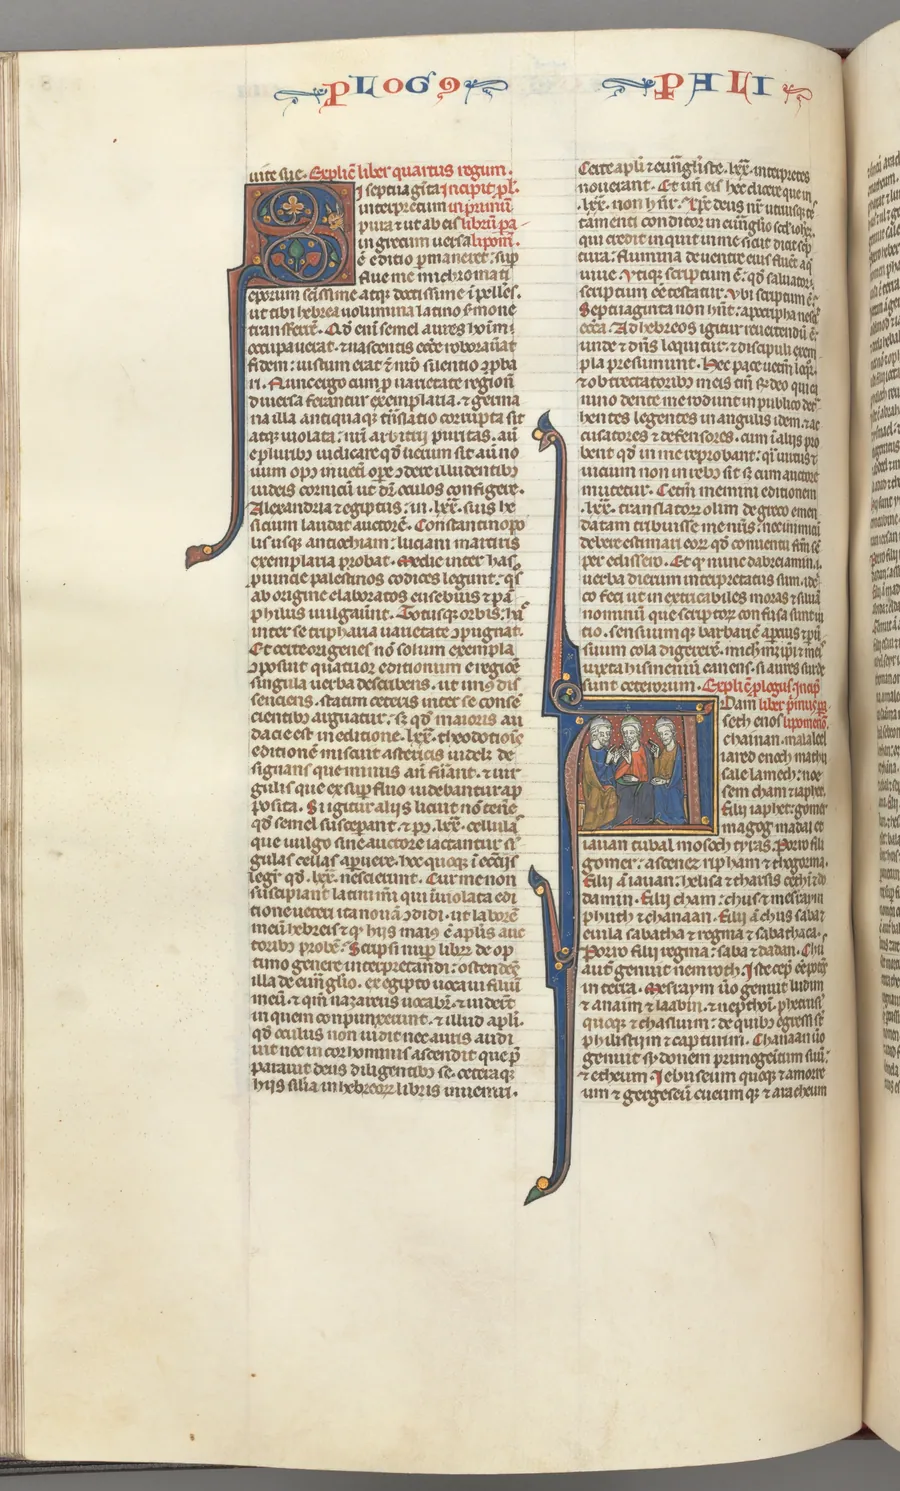 PLOGꝰ PALI
uite sue. Explic̄ liber quartus regum.
Si septuaginta incipit pl̄.
interpretum in primū
pura et ut ab eis librū pa
in grecum uersa lipom̄.
ē editio pmaneret: sup
flue me mi chromati
ep̄orum sc̄issime atqꝫ doctissime īpelles.
ut tibi hebrea uolumina latino s̄mone
transferrē. Qd̄ eni semel aures hoīm
occupauerat. et nascentis ecc̄e roborauat
fidem: iustum erat et nr̄o silentio ɔpba
ri. Nunc ergo cum ꝓ uarietate regionū
diuersa ferantur exemplaria. et germa
na illa antiquaqꝫ tn̄slatio corrupta sit
atqꝫ uiolata: nr̄i arbitrii putas. aut
e pluribꝫ iudicare qd̄ uerum sit aut no
uum opꝰ in ueti ope ɔdere illudentibꝫ
iudeis cornicū ut dr̄ oculos configere.
Alexandria et egiptus: in .lxx. suis he
sicium laudat auctorē. Constantinopo
lis usqꝫ antiochiam: luciani martiris
exemplaria probat. Medie inter has
puincie palestinos codices legunt: qͥs
ab origine elaboratos eusebius et pā
philus uulgauūt. Totusqꝫ orbis: hͣ
inter se triphaaria uarietate ɔpugnat.
Et certe origenes nō solum exempla
ɔposuit quatuor editionum e regiōe
singula uerba describens. ut unꝰ dis
sentiens. statim ceteris inter se conse
cientibꝫ arguatur: sꝫ qd̄ maioris au
dacie est in editione .lxx. theodotiōis
editionē miscuit astericis uidelꝫ de
signans que minus ante fūant. et uir
gulis que ex supfluo uidebantur ap
posita. Si igitur aliis licuit nō tenē
qd̄ semel suscepant. et pꝰ .lxx. cellulas
que uulgo sine auctore iactantur si
gulas cellas apuere. hec quoqꝫ ī ecciis
legit̄ qd̄ .lxx. nescierunt. Cur me non
suscipiant latini mi qui īuiolata edi
tione ueteri ita nouā ɔdidi. ut laborē
meū hebreis et qͥ hiis maiꝰ ē aplis auc
toribꝫ probē. Scripsi nup librꝫ de op
timo genere interpretandi: ostendēs
illa de euāglio. ex egipto uocaui filiū
meū. et qm̄ nazareus uocabit̄. et uidebūt
in quem compunxerunt. et illud apli.
qd̄ oculus non uidit nec auris audi
uit nec in cor hominis ascendit que p̄
parauit deus diligentibꝫ se. ceteraqꝫ
hiis silia in hebreorꝫ libris inueniri.
Certe apl̄i et euāgl̄iste .lxx. interpretes
nouerant. Et un̄ eis hec dicere que in
.lxx. non hn̄t. Xp̄c deus nr̄ utriusqꝫ tes
tamenti conditor in euāglio scd̄ ioh̄.
qui credit inquit in me sicut dicit scp
tura: flumina de uentre eius fluēt aq̄
uiue. Utiqꝫ scriptum ē: qd̄ saluator
scriptum ee testatur. Ubi scriptum ē.
Septuaginta non hn̄t: apocripha nescit
ecc̄a. Ad hebreos igitur reuertendū ē:
unde et dn̄s loquitur. et discipuli exem
pla presumunt. Hec pace ueterm̄ loqꝛ.
et obtrectatoribꝫ meis tm̄ r̄ndeo qui ca
nino dente me rodunt in publico det
hentes legentes in angulis idem. et ac
cusatores et defensores. cum ī aliis pro
bent qd̄ in me reprobant: qͣi uirtꝰ et
uicium non in rebꝫ sit sꝫ cum auctore
mutetur. Ceterm̄ memini editionem
.lxx. translatorꝫ olim de greco emen
datam tribuisse me nr̄is: nec inimicū
debere estimari eorꝫ qd̄ conuentu frm̄ sē
per edissero. Et qd̄ nunc dabreiamin. i.
uerba dierum interpretatus sum. idcͦ
co feci ut inextricabiles moras et siluā
nominū que scriptorꝫ confusa sunt ui
tio. sensuumqꝫ barbariē apcius et p
suum cola digererē. michimꝫipi et meis
iuxta hismeniū canens. si aures surde
sunt ceterorum. Explic̄ plogus. incip̄
Adam liber pimus pa
seth enos lipomenō.
chainan. malaleel
iared enoch mathu
sale lamech: noe
sem cham et iaphet.
Filii iaphet: gomer
magog madai et
iauan tubal mosoch tyras. Porro filii
gomer: ascenez ripham et thogorma.
Filii ā iauan: helisa et tharsis cethī et do
danim. Filii cham: chus et mesraym
phuth et chanaan. Filii ā chus saba et
euila sabatha et regma et sabathaca.
Porro filii regma: saba et dadan. Chꝰ
aut̄ genuit nemroth. Iste cep̄ ee potēs
in terra. Mesraym ūo genuit ludim
et anaim et laabin. et nepthoī. phetrusī
quoqꝫ et chasluim: de quibꝫ egressi sūt
philistiim et capturim. Chanaan ūo
genuit sydonem primogeitum suū:
et etheum. Iebuseum quoqꝫ et amorre
um et gergeseū eueum qꝫ et aracheum